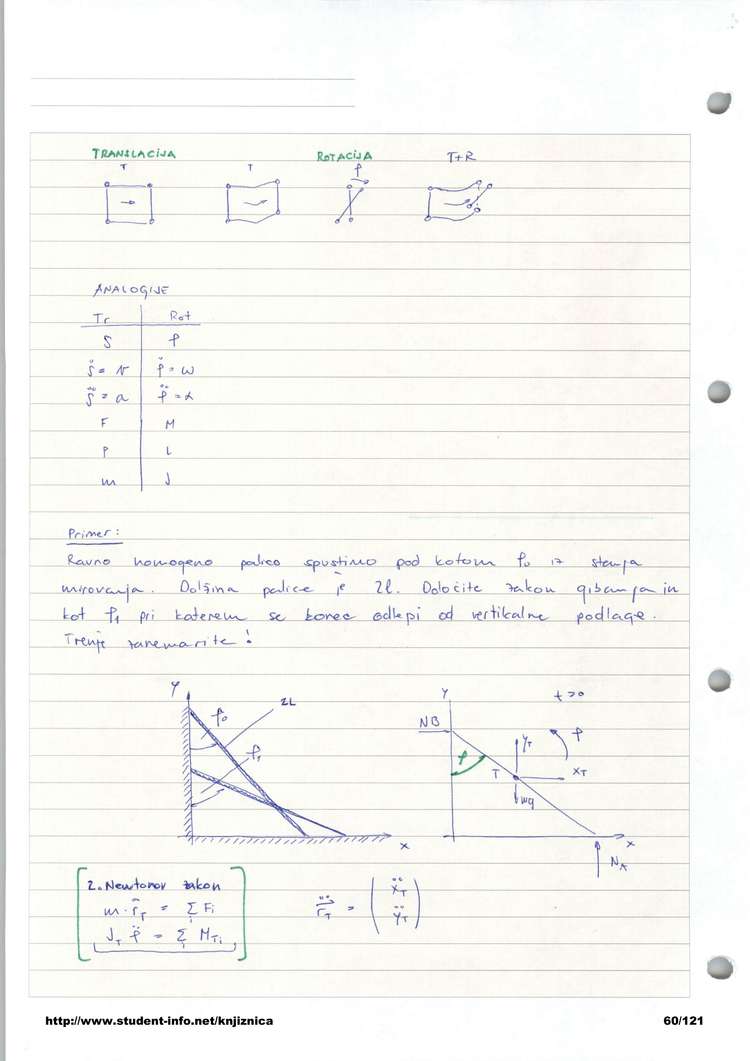 TRANSLACIJA ROTACIJA T+R
T T φ
ANALOGIJE
Tr Rot
S φ
ṡ = v φ̇ = ω
s̈ = a φ̈ = α
F M
P L
m J
Primer:
Ravno homogeno palico spustimo pod kotom φ₀ iz stanja
mirovanja. Dolžina palice je 2l. Določite zakon gibanja in
kot φ₁ pri katerem se konec odlepi od vertikalne podlage.
Trenje zanemarite!
Y 2L φ₀ φ₁ x
Y t>0
NB φ
φ T Y_T X_T
mg
x
N_A
2. Newtonov zakon
m · r̈_T = Σ Fi
J_T φ̈ = Σ M_Ti
r̈_T = (ẍ_T
ÿ_T)
http://www.student-info.net/knjiznica 60/121